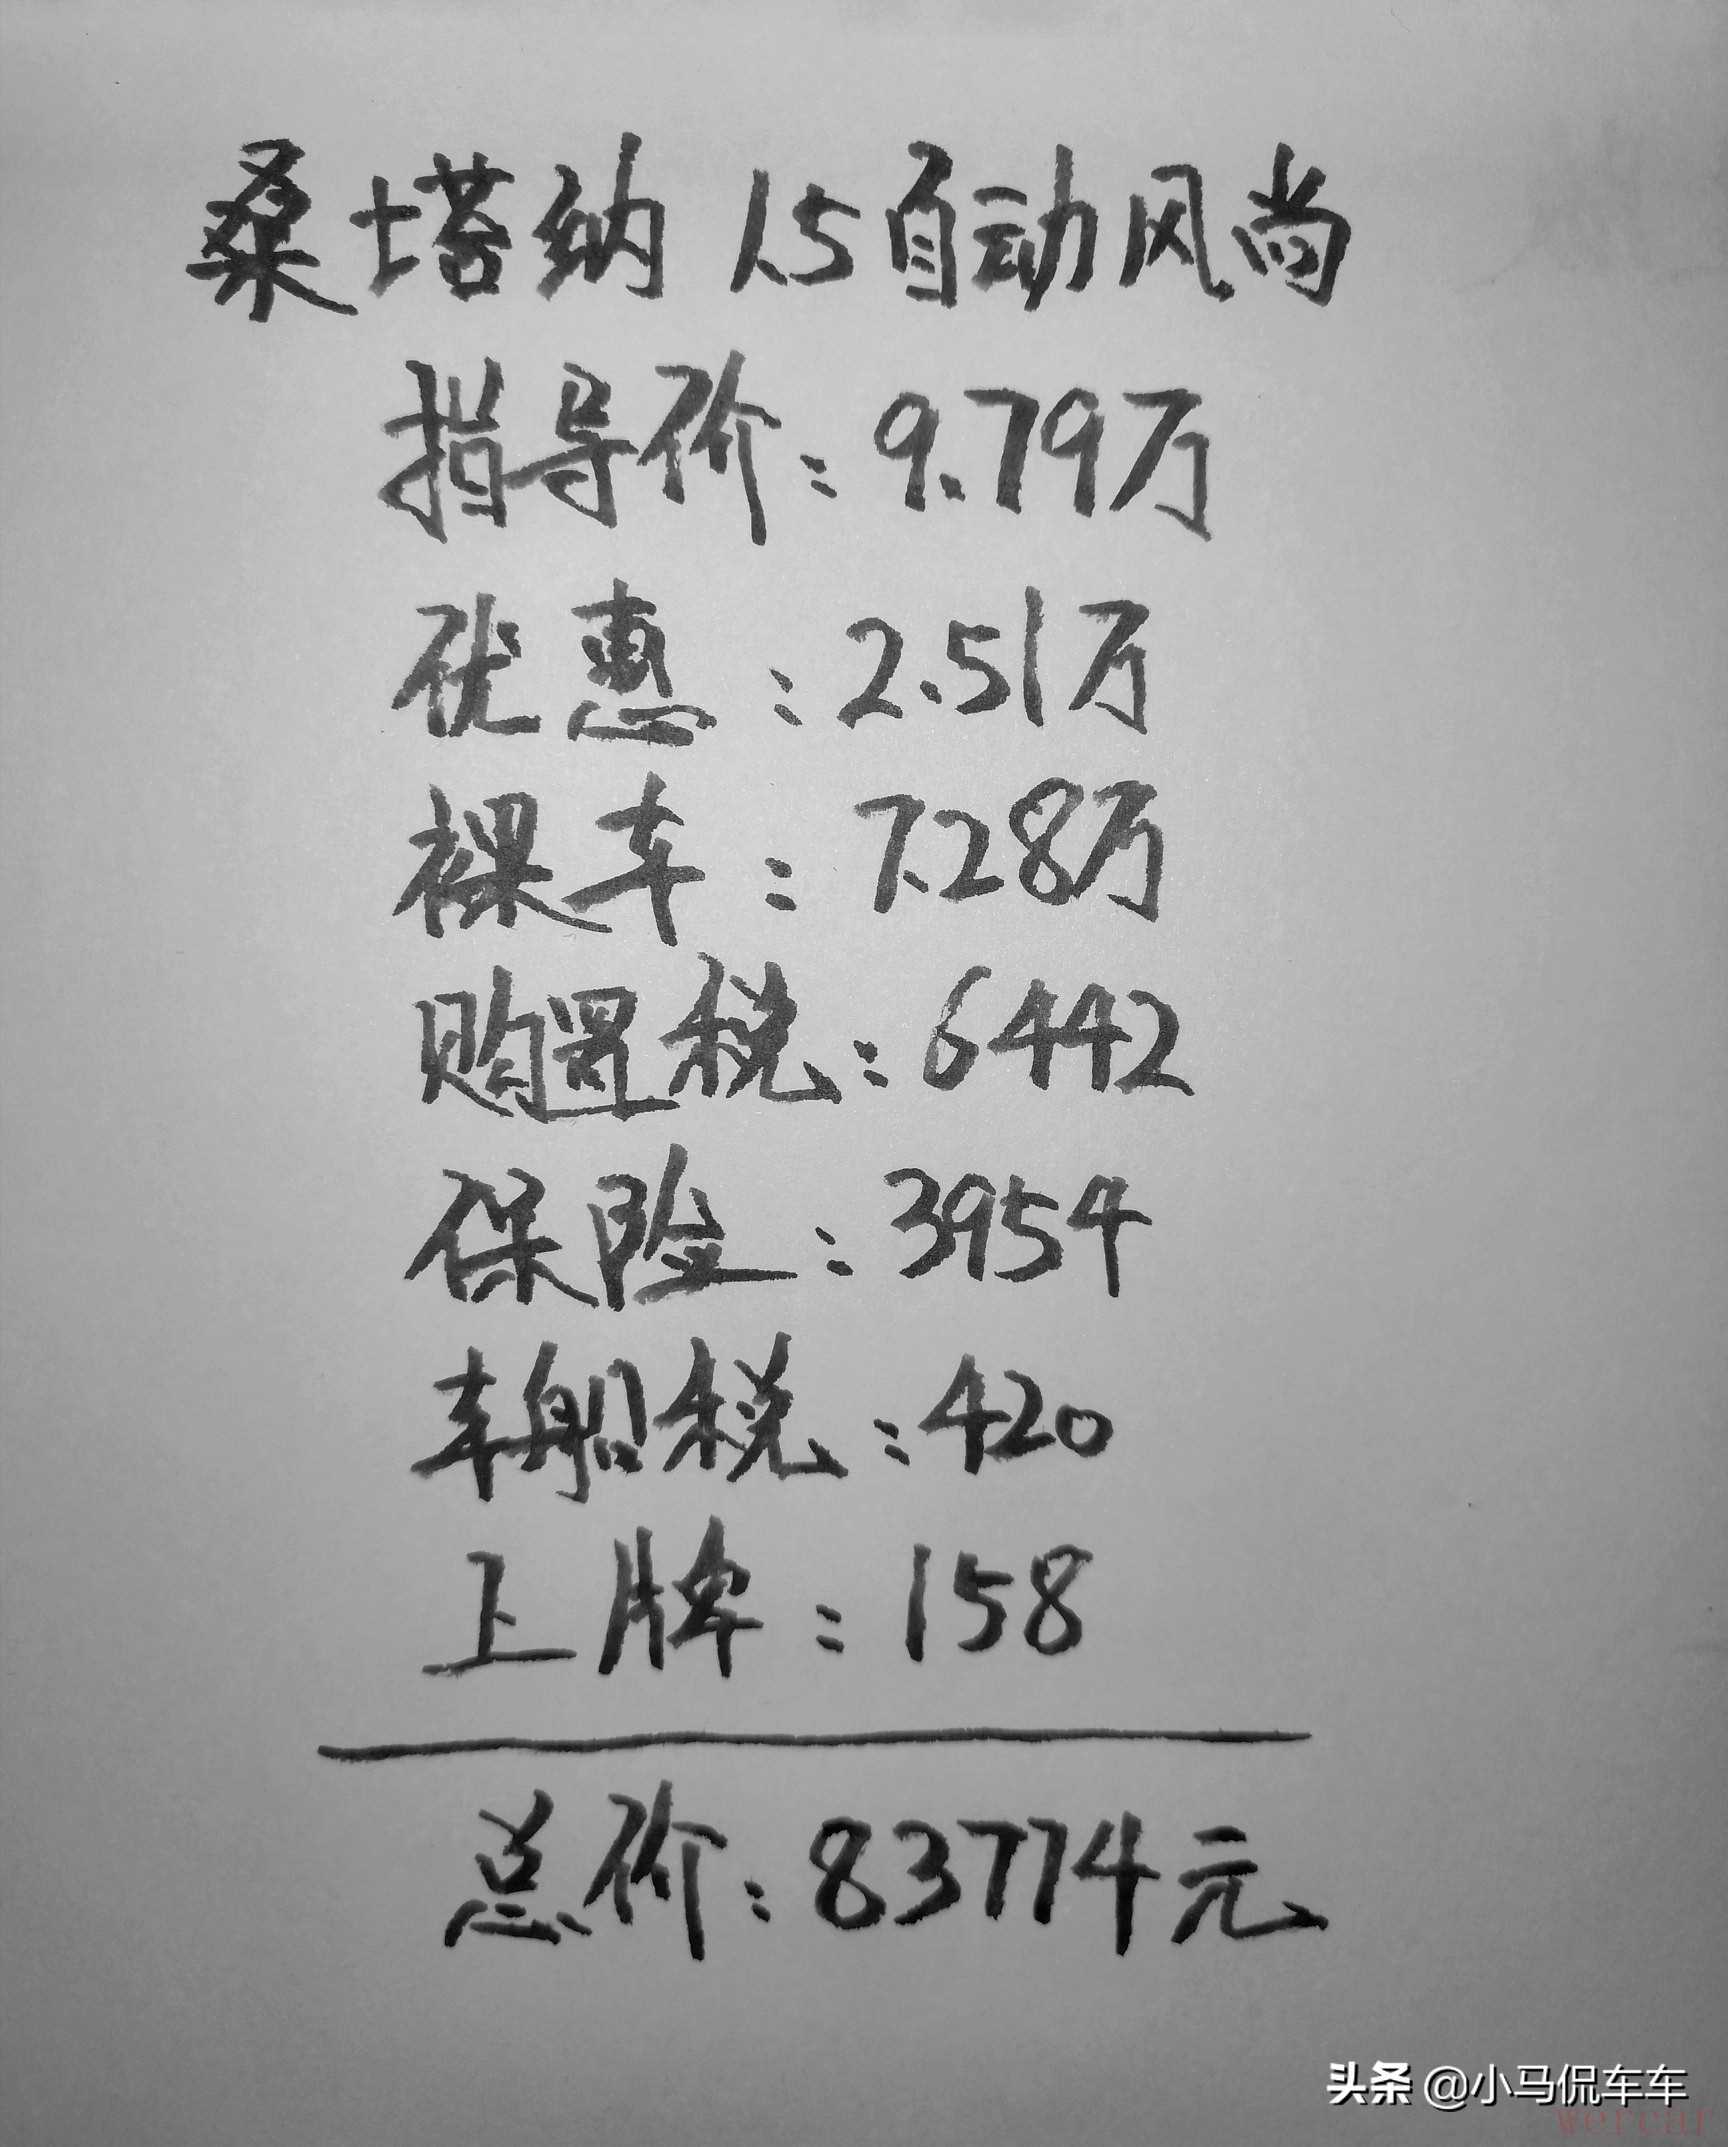 桑塔纳 1.5自动风尚
指导价:9.79万
优惠:2.51万
裸车:7.28万
购置税:6442
保险:3954
车船税:420
上牌:158
总价:83774元
头条 @小马侃车车
wercar